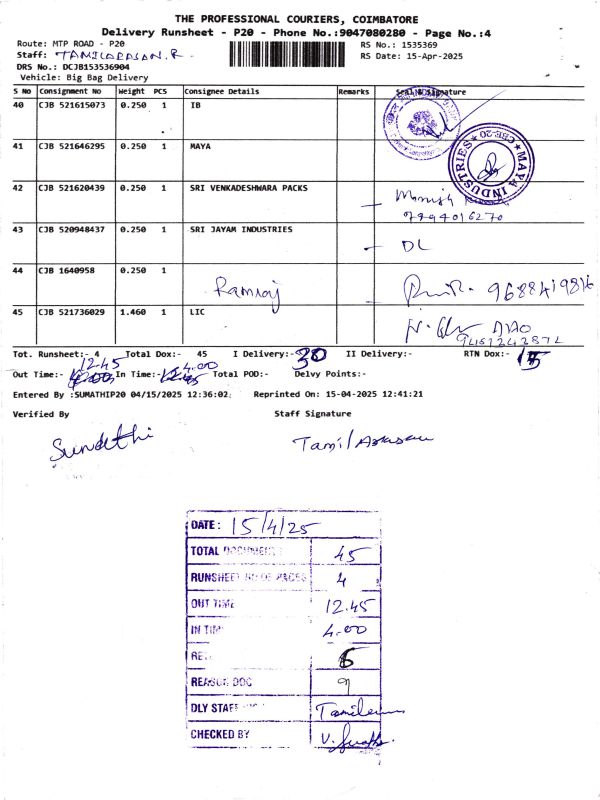 THE PROFESSIONAL COURIERS, COIMBATORE
Delivery Runsheet - P20 - Phone No.:9047080280 - Page No.:4
Route: MTP ROAD - P20
RS No.: 1535369
Staff: TAMILARASAN.R
RS Date: 15-Apr-2025
DRS No.: DCJB153536904
Vehicle: Big Bag Delivery
S No Consignment No Weight PCS Consignee Details Remarks Seal & Signature
40 CJB 521615073 0.250 1 IB
41 CJB 521646295 0.250 1 MAYA
MAYA INDUSTRIES
CBE-20
42 CJB 521620439 0.250 1 SRI VENKADESHWARA PACKS
7994016270
43 CJB 520948437 0.250 1 SRI JAYAM INDUSTRIES DL
44 CJB 1640958 0.250 1 Ramraj 9688419816
45 CJB 521736029 1.460 1 LIC
Tot. Runsheet:- 4 Total Dox:- 45 I Delivery:- 30 II Delivery:- RTN Dox:-
12.45 4.00
Out Time:- In Time:- Total POD:- Delvy Points:-
Entered By :SUMATHIP20 04/15/2025 12:36:02 Reprinted On: 15-04-2025 12:41:21
Verified By Staff Signature
Sumathi Tamil Arasan
DATE: 15/4/25
TOTAL DOCUMENT 45
RUNSHEET NO OF PAGES 4
OUT TIME 12.45
IN TIME 4.00
REASON DOC 9
DLY STAFF
CHECKED BY